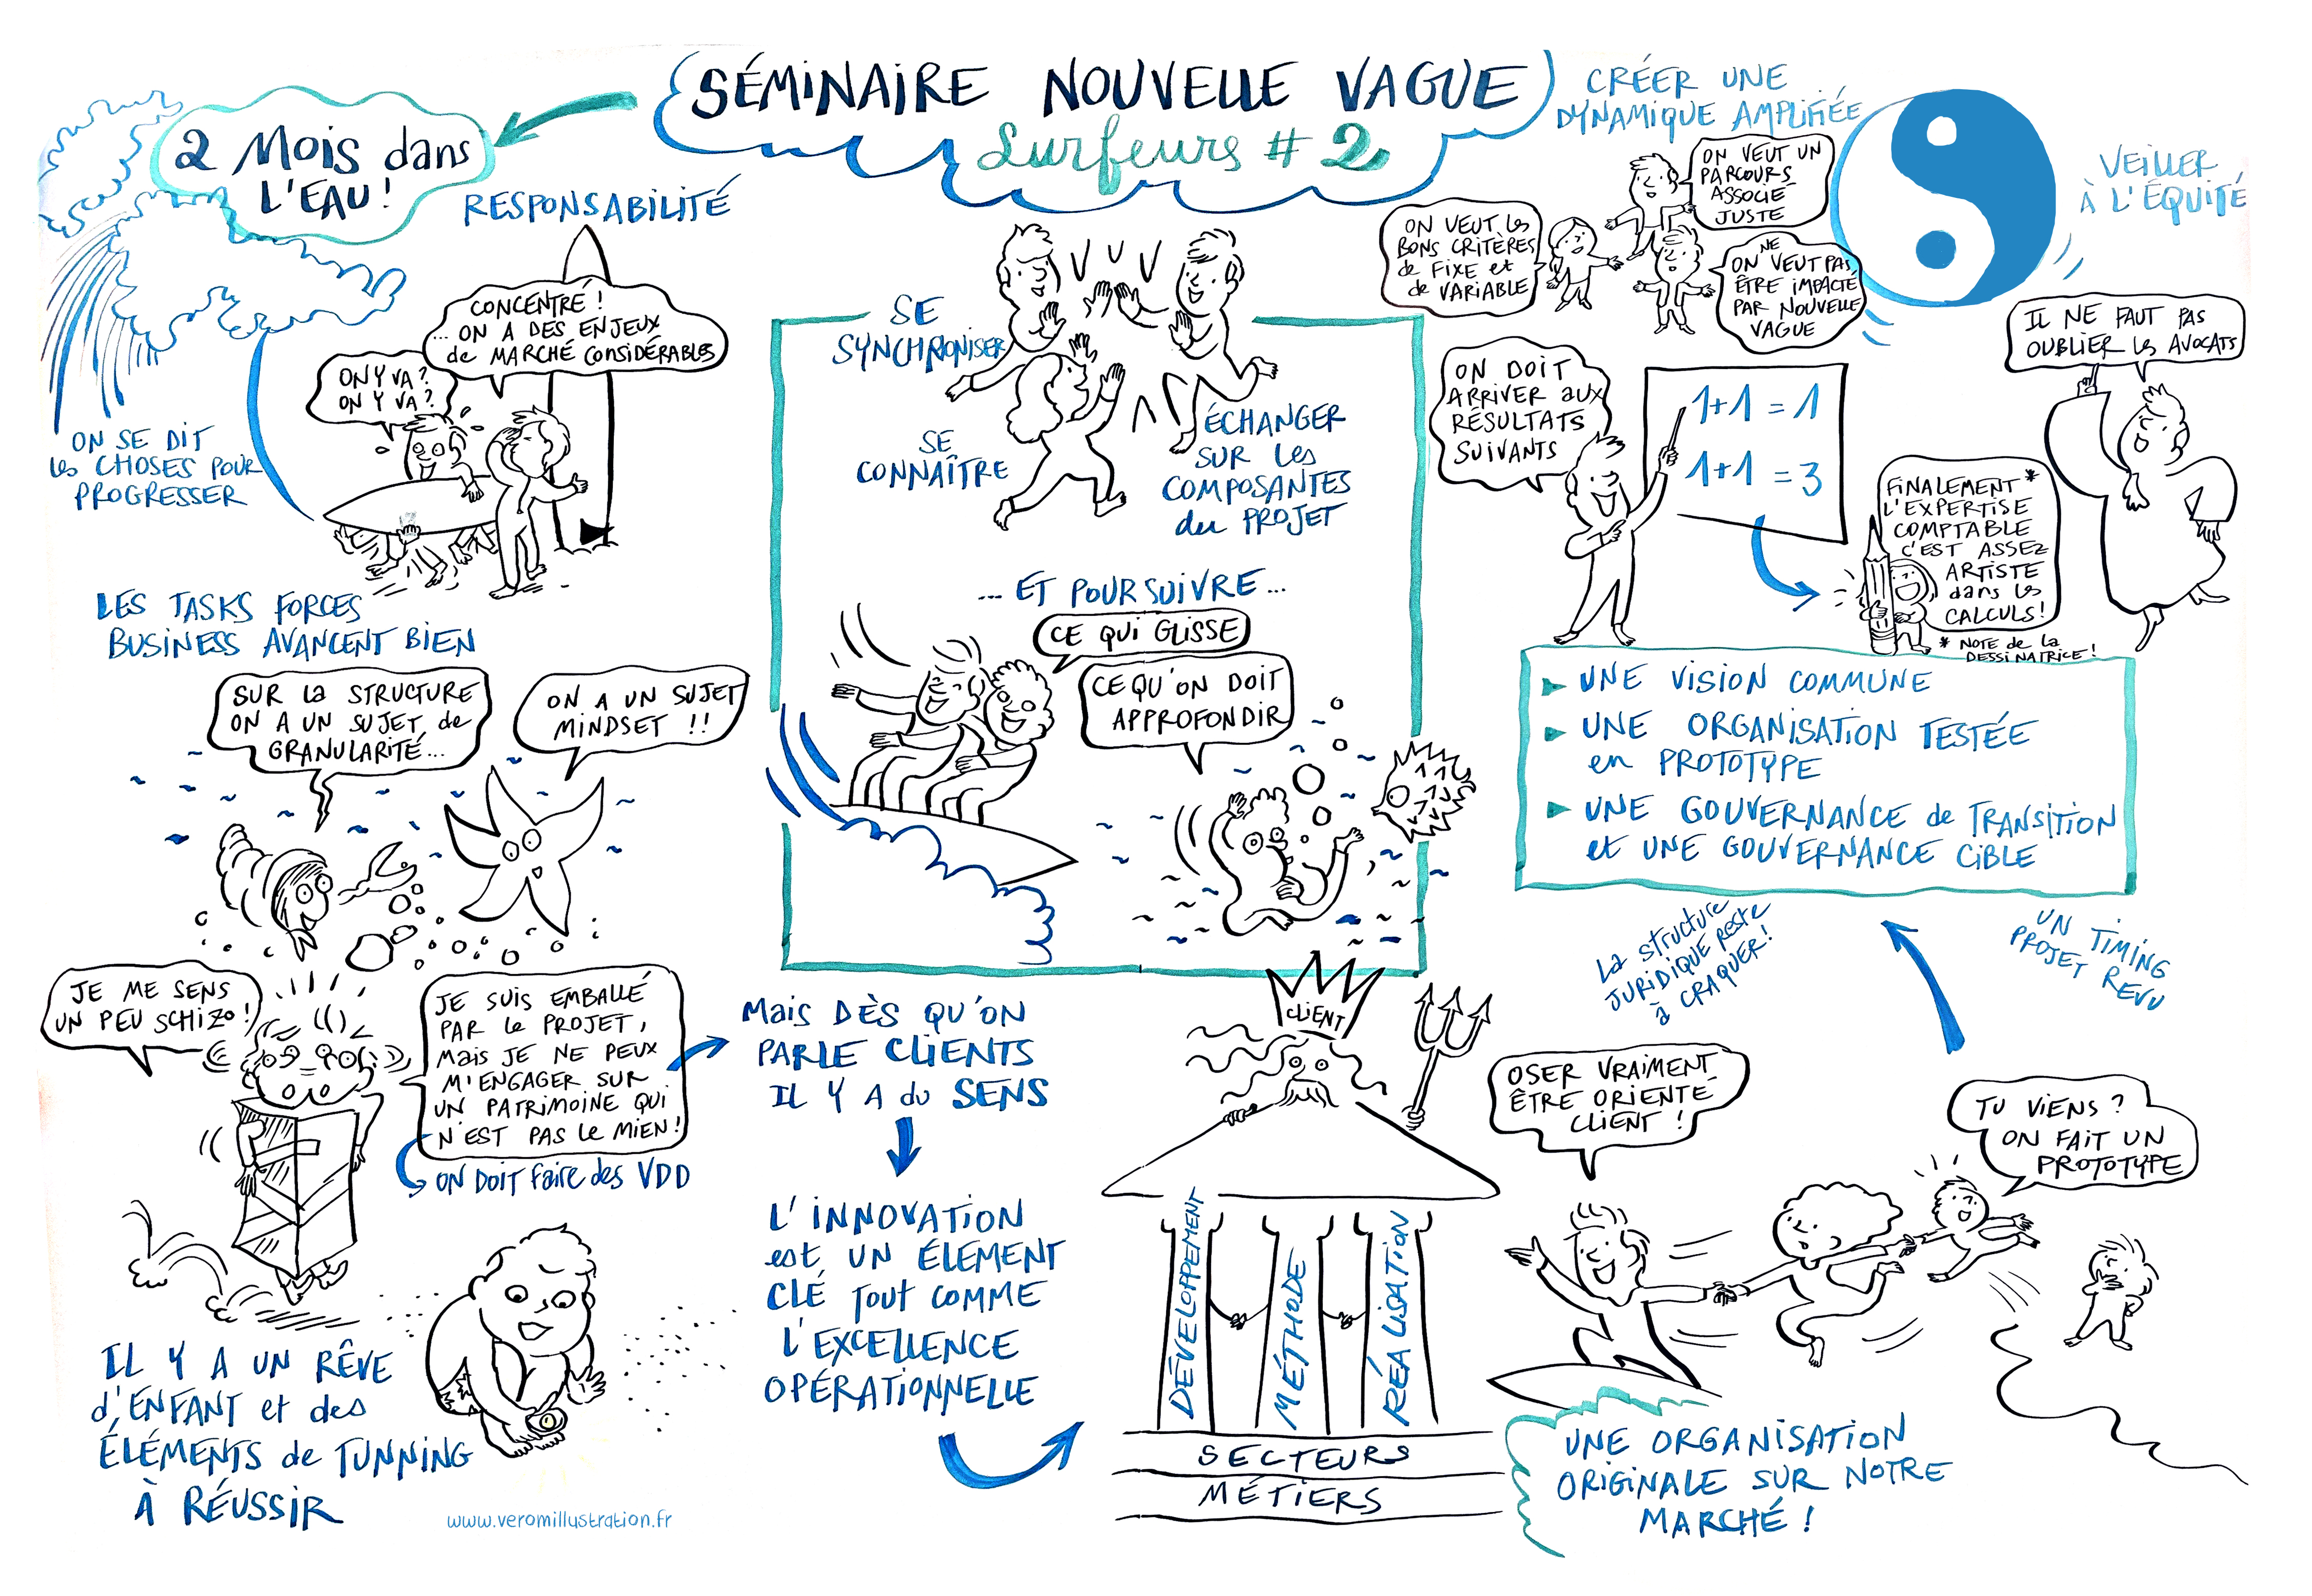 SÉMINAIRE NOUVELLE VAGUE
Surfeurs # 2
2 Mois dans
L'EAU !
RESPONSABILITÉ
CONCENTRÉ !
... ON A DES ENJEUX
de MARCHÉ CONSIDÉRABLES
ON Y VA ?
ON Y VA ?
ON SE DIT
les CHOSES POUR
PROGRESSER
LES TASKS FORCES
BUSINESS AVANCENT BIEN
SUR La STRUCTURE
ON A UN SUJET de
GRANULARITÉ...
ON A UN SUJET
MINDSET !!
JE ME SENS
UN PEU SCHIZO !
JE SUIS EMBALLÉ
PAR le PROJET,
Mais JE NE PEUX
M'ENGAGER SUR
UN PATRIMOINE QUI
N'EST PAS le MIEN !
ON DOIT faire des VDD
IL Y A UN RÊVE
d'ENFANT et des
ÉLÉMENTS de TUNNING
À RÉUSSIR
www.veromillustration.fr
SE
SYNCHRONISER
SE
CONNAÎTRE
ÉCHANGER
SUR Les
COMPOSANTES
du PROJET
... ET POURSUIVRE ...
CE QUI GLISSE
CE QU'ON DOIT
APPROFONDIR
Mais DÈS QU'ON
PARLE CLIENTS
IL Y A du SENS
L'INNOVATION
est UN ÉLEMENT
CLÉ Tout COMME
L'EXCELLENCE
OPÉRATIONNELLE
CLIENT
DÉVELOPPEMENT
MÉTHODE
RÉALISATION
SECTEURS
MÉTIERS
CRÉER UNE
DYNAMIQUE AMPLIFIÉE
VEILLER
À L'ÉQUITÉ
ON VEUT UN
PARCOURS
ASSOCIÉ
JUSTE
ON VEUT les
BONS CRITÈRES
de FIXE et
de VARIABLE
NE
ON VEUT PAS
ÊTRE IMPACTÉ
PAR NOUVELLE
VAGUE
ON DOIT
ARRIVER aux
RÉSULTATS
SUIVANTS
1+1 = 1
1+1 = 3
IL NE FAUT PAS
OUBLIER les AVOCATS
FINALEMENT *
L'EXPERTISE
COMPTABLE
C'EST ASSEZ
ARTISTE
dans les
CALCULS !
* NOTE de la
DESSINATRICE !
UNE VISION COMMUNE
UNE ORGANISATION TESTÉE
en PROTOTYPE
UNE GOUVERNANCE de TRANSITION
et UNE GOUVERNANCE CIBLE
La structure
JURIDIQUE reste
à CRAQUER !
UN TIMING
PROJET REVU
OSER VRAIMENT
ÊTRE ORIENTÉ
CLIENT !
TU VIENS ?
ON FAIT UN
PROTOTYPE
UNE ORGANISATION
ORIGINALE SUR NOTRE
MARCHÉ !